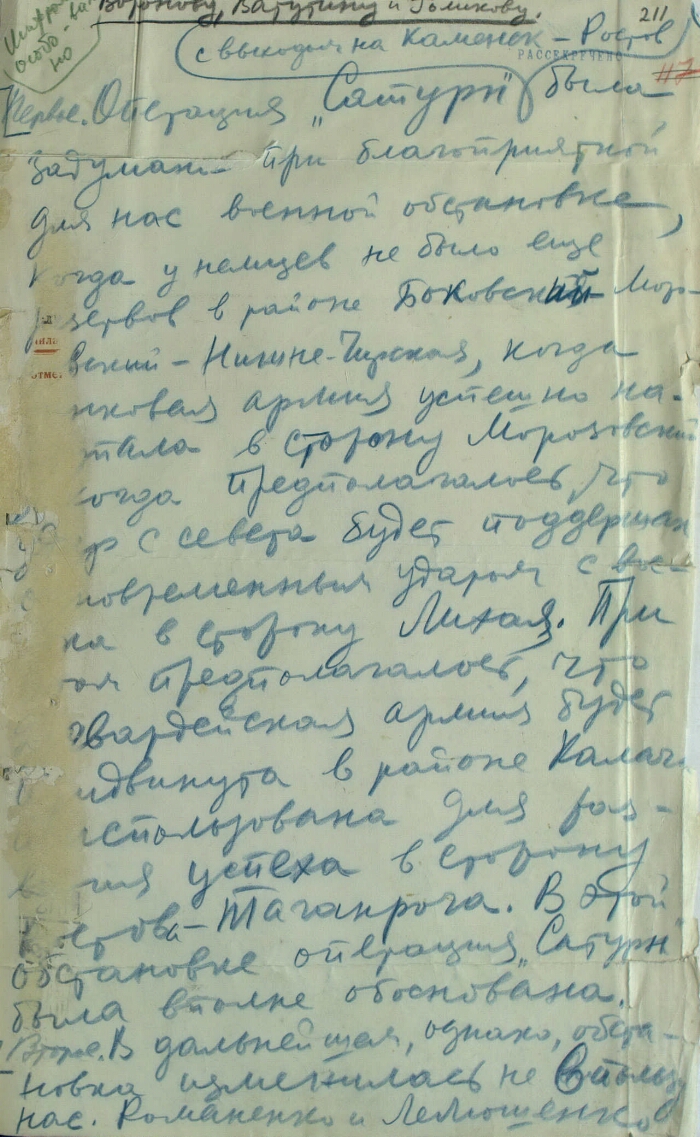 Воронову, Ватутину и Голикову.
211
Шифром
особо
но
с выходом на Каменск – Ростов
РАССЕКРЕЧЕНО
Первое. Операция „Сатурн" была
задумана при благоприятной
для нас военной обстановке,
когда у немцев не было еще
резервов в районе Боковский Моро-
вский – Нижне-Чирская, когда
нковая армия успешно на-
пала в сторону Морозовский
когда предполагалось, что
ар с севера будет поддержан
новременным ударом с вос-
ка в сторону Лихая. При
ом предполагалось, что
гвардейская армия будет
идвинута в районе Калач
использована для раз-
ия успеха в сторону
Ростова – Таганрога. В этой
обстановке операция „Сатурн"
была вполне обоснована.
Второе. В дальнейшем, однако, обста-
новка изменилась не в пользу
нас. Романенко и Лелюшенко